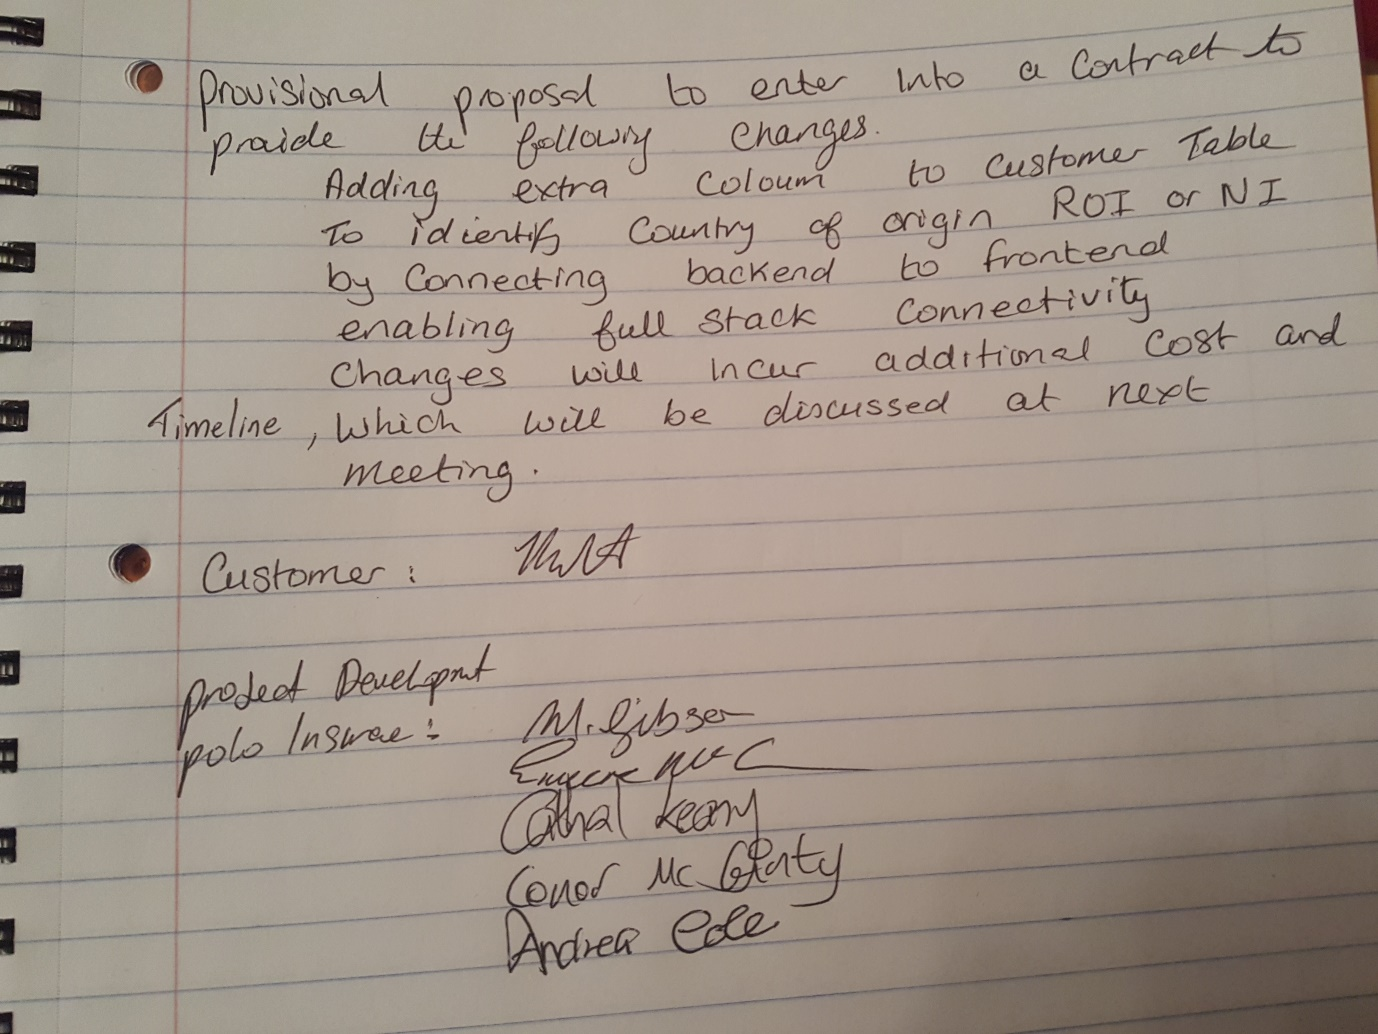 Provisional proposal to enter into a Contract to
praide the following changes.
Adding extra Coloum to Customer Table
To idientify Country of origin ROI or NI
by Connecting backend to frontend
enabling full stack connectivity
Changes will incur additional cost and
Timeline, which will be discussed at next
meeting.
Customer:
project Develepmt
polo Insurae:
M. Gibson
Cathal Keany
Conor Mc
Andrea Cole